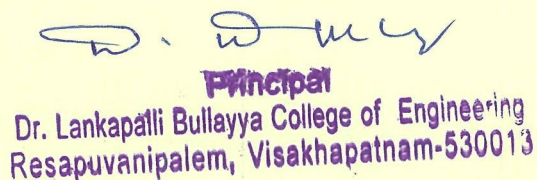 Principal
Dr. Lankapalli Bullayya College of Engineering
Resapuvanipalem, Visakhapatnam-530013